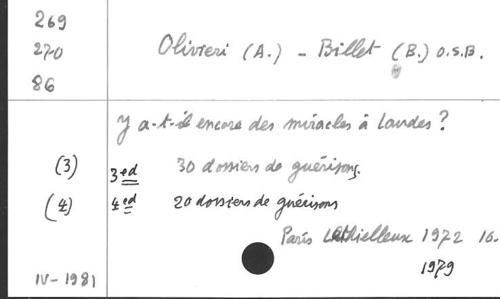 269
270 Olivieri (A.) - Billet (B.) O.S.B.
86
Y a-t-il encore des miracles à Lourdes ?
(3) 3ed 30 dossiers de guérisons.
(4) 4ed 20 dossiers de guérisons
Paris Lethielleux 1972 16.
1979
IV-1981